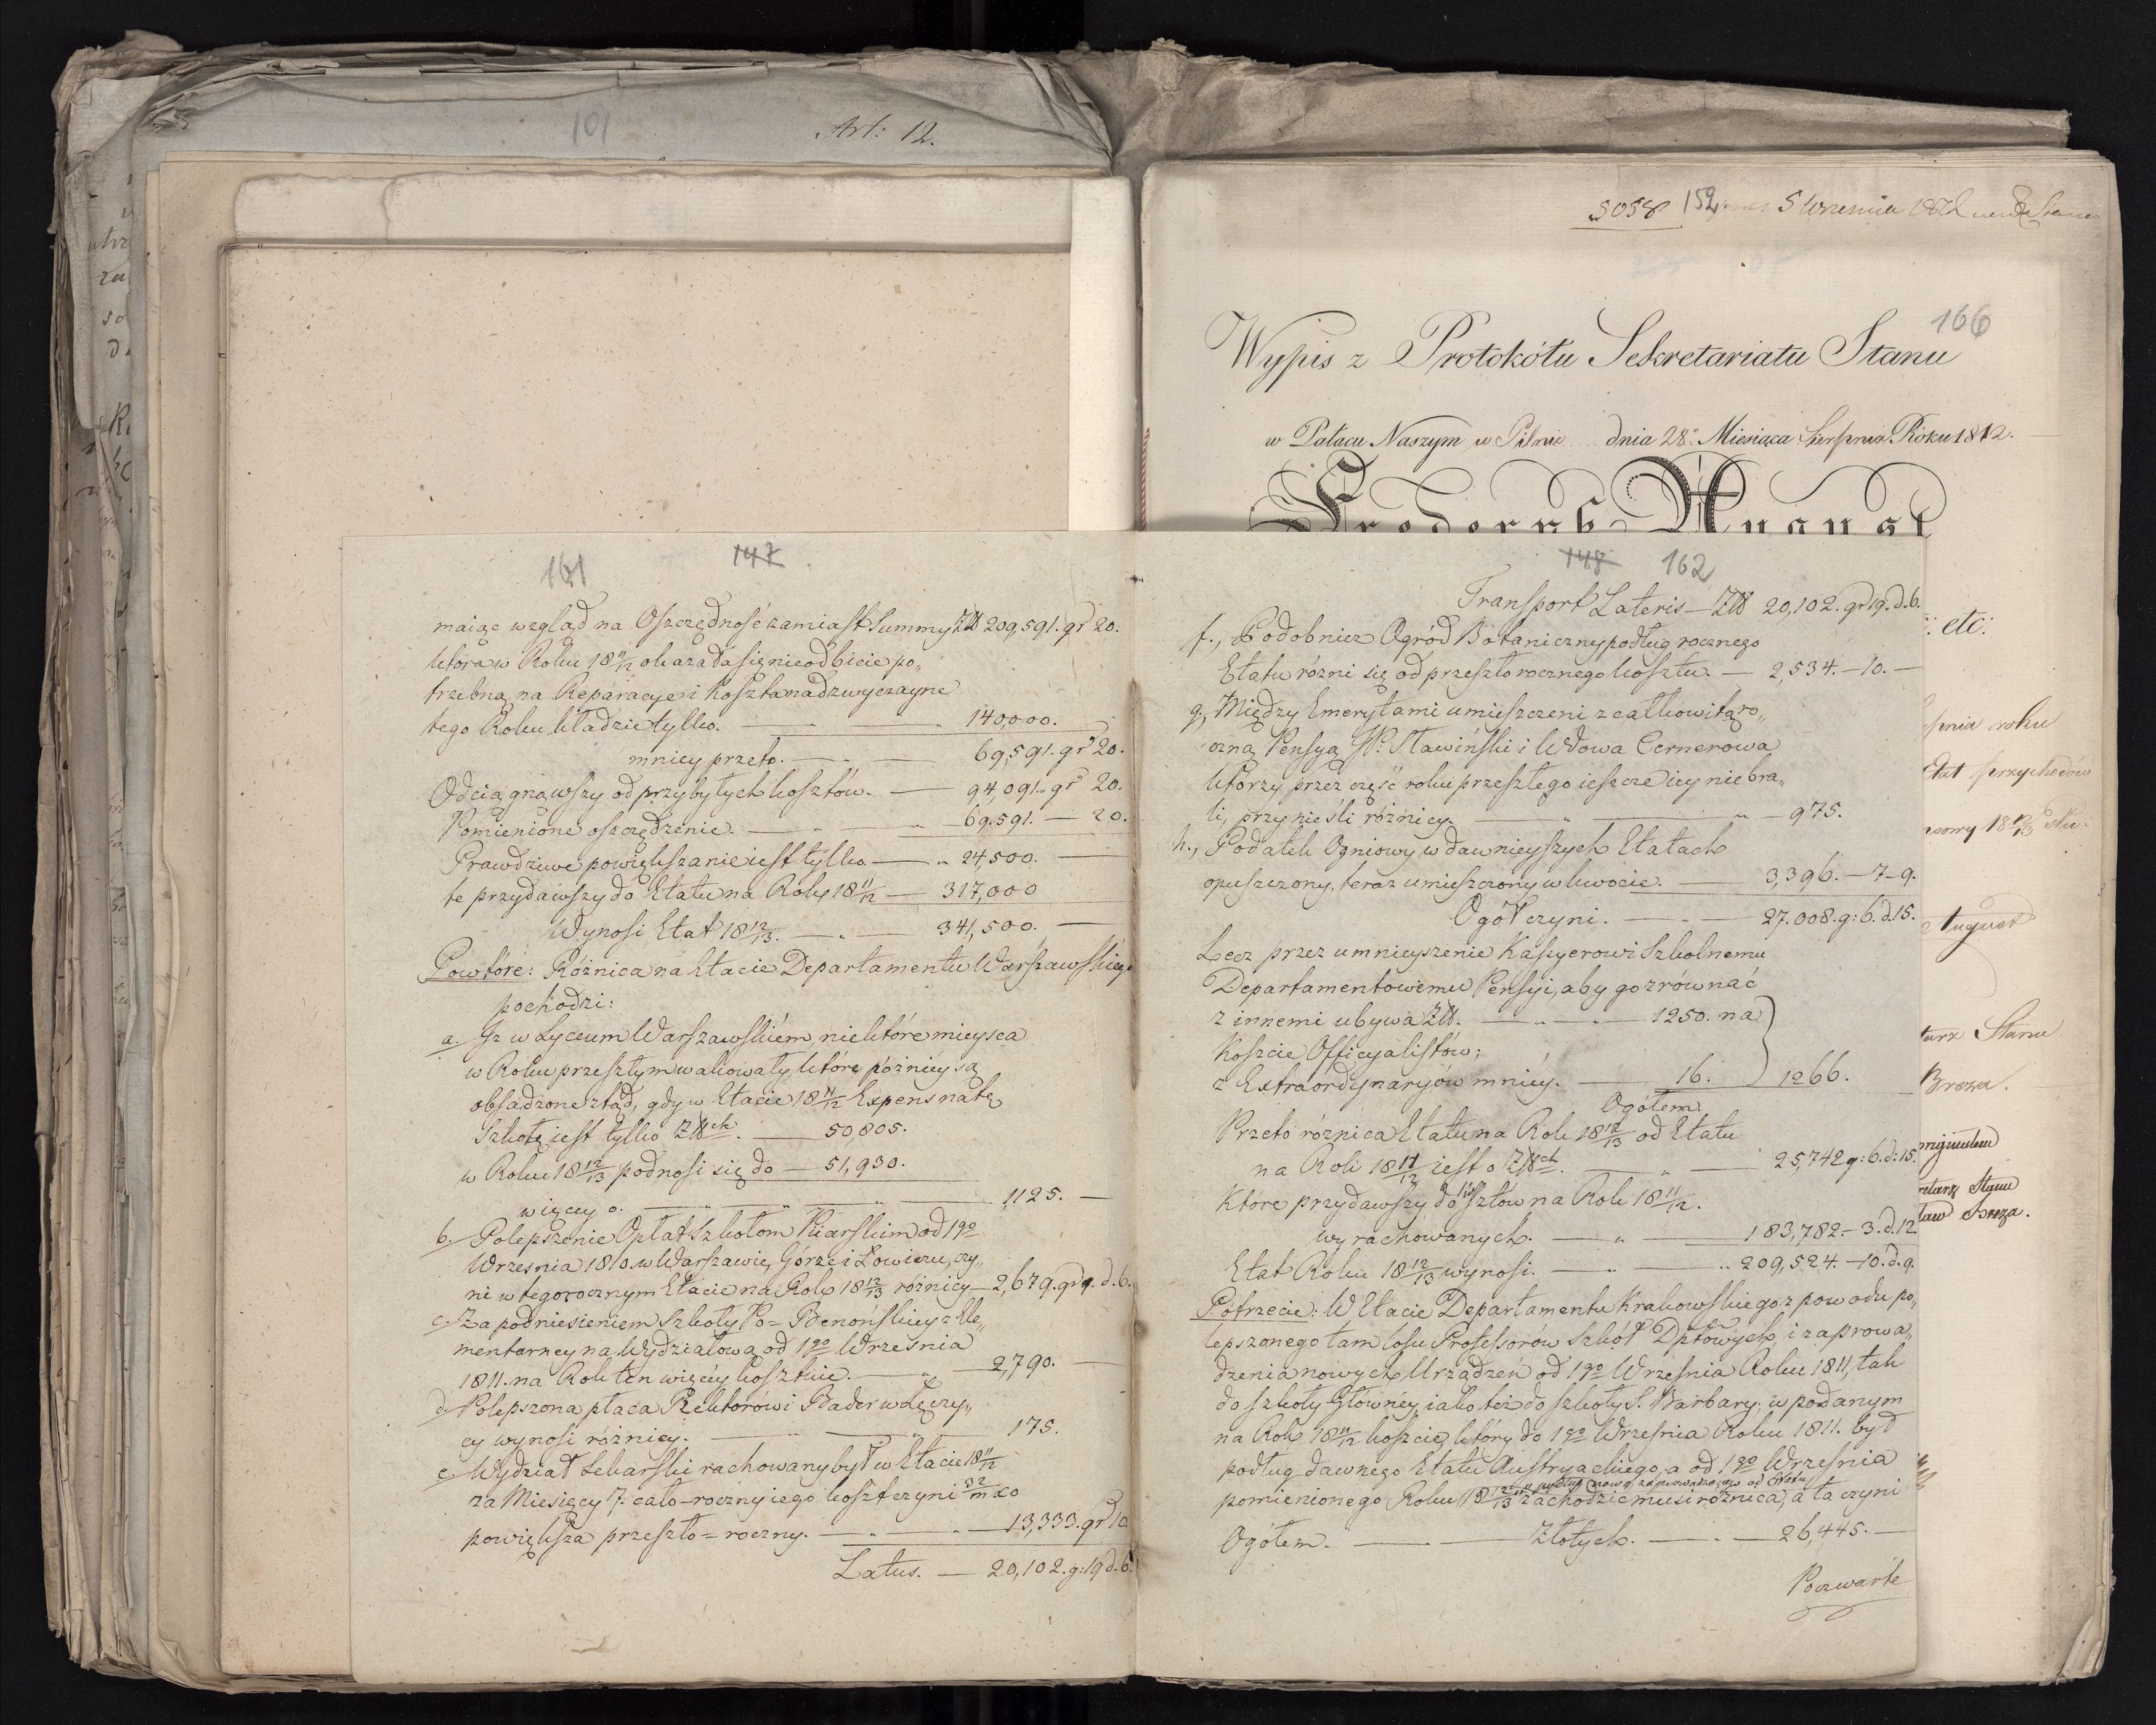 101
Art: 12.
161
147
maiąc wzgląd na Oszczędność zamiast Summy Złł 209,591. gr 20.
ktora w Roku 18 11/12 okazała się nieodbicie po„
trzebną na Reparacye i koszta nadzwyczayne
tego Roku kładzie tylko. — 140,000.
mniey przeto. — 69,591. gr 20.
Odciągnąwszy od przybyłych kosztów. — 94,091. gr 20.
Pomienione oszczędzenie. — 69.591. — 20.
Prawdziwe powiększanie iest tylko — 24,500. —
te przydawszy do Etatu na Rok 18 11/12 — 317,000
Wynosi Etat 18 12/13. — 341,500. —
Powtóre: Róźnica na Etacie Departamentu Warszawskiego
pochodzi:
a. Iż w Lyceum Warszawskiém niektóre mieysca
w Roku przeszłym wakowały, które późniéy są
obsadzone ztąd, gdy w Etacie 18 11/12 Expens na tę
Szkołę iest tylko Złłch. — 50,805.
w Roku 18 12/13 podnosi się do — 51,930.
więcey o. — 1125. —
b. Polepszenie Opłat Szkołom Piiarskim od 1go
Wrzesnia 1810. w Warszawie, Górze i Łowiczu, czy„
ni w tegorocznym Etacie na Rok 18 12/13 różnicy — 2,679. gr 9. d. 6.
c. Za podniesieniem Szkoły Po=Benońskiey z Ele„
mentarney na Wydziałową od 1go Wrzesnia
1811. na Rok ten więcéy kosztuie. — 2,790. —
d. Polepszona płaca Rektorów i Bader w Łęczy„
cy wynosi różnicy. — 175.
e. Wydział Lekarski rachowany był w Etacie 18 11/12
za Miesięcy 7. cało-roczny iego koszt czyni 32/m co
powiększa przeszło=roczny. — 13,333. gr 10.
Latus. — 20,102. g: 19 d. 6.
5058
152
5 Wrzesnia 1812
166
Wypis z Protokółu Sekretariatu Stanu
w Pałacu Naszym w Pilnic dnia 28o Miesiąca Sierpnia Roku 1812.
Frederyk August
148
162
Transport Lateris — Złł 20,102. gr 19. d. 6.
f., Podobniez Ogród Botaniczny podług rocznego
Etatu rózni się od przeszłorocznego kosztu. — 2,534. — 10. —
g., Między Emerytami umieszczeni z całkowitą ro„
czną Pensyą JP. Sławiński i Wdowa Cernerowa,
którzy przez część roku przeszłego ieszcze iey nie bra„
li, przynieśli różnicy. — 975.
h., Podatek Ogniowy w dawnieyszych Etatach
opuszczony, teraz umieszczony w kwocie. — 3,396. — 7 — 9.
Ogół czyni. — 27.008. g: 6. d. 15.
Lecz przez umnieyszenie Kassyerowi Szkolnemu
Departamentowemu Pensyi, aby go zrównać
z innemi ubywa Złł. — 1250. na
Koszcie Officyalistów;
z Extraordynaryów mniéy. — 16. 1266.
Ogółem.
Przeto róznica Etatu na Rok 18 12/13 od Etatu
na Rok 18 11/12 iest o Złłch. — 25,742 g: 6. d: 15.
Ktore przydawszy do kosztow na Rok 18 11/12.
wyrachowanych. — 183,782. — 3. d. 12.
Etat Roku 18 12/13 wynosi. — 209,524. — 10. d. 9.
Potrzecie: W Etacie Departamentu Krakowskiego z powodu po„
lepszonego tam losu Professorów Szkół Dptowych, i zaprowa„
dzenia nowych Urządzeń od 1go Wrzesnia Roku 1811, tak
do szkoły Głównéy iako też do szkoły S. Barbary, w podanym
na Rok 18 11/12 koszcie, który do 1go Wrzesnia Roku 1811. był
podług dawnego Etatu Austryackiego, a od 1go Wrzesnia
podług nowo zaprowadzonego od Etatu
pomienionego Roku 18 12/13 zachodzic musi róznica, a ta czyni
Ogółem. — Złotych. — 26,445. —
Poczwarte
etc:
roku
Etat przychodów
18 12/13
August
Stanu
Breza.
Stanu
Breza.